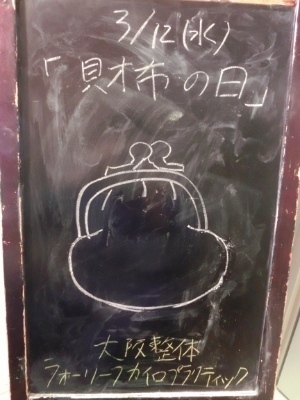 3/12(水)
「財布の日」
大阪整体
フォーリーフカイロプラクティック